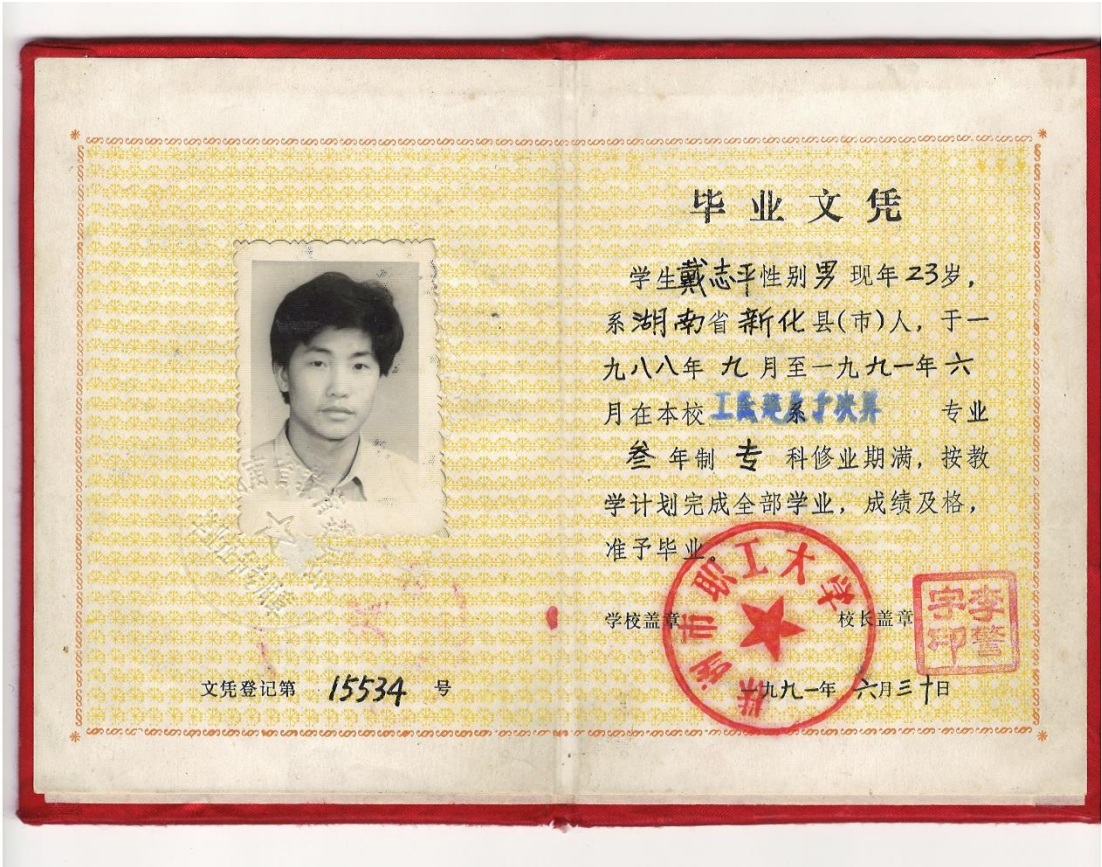 毕业文凭
学生戴志平性别男现年23岁，
系湖南省新化县(市)人，于一
九八八年九月至一九九一年六
月在本校工民建系决算专业
叁年制专科修业期满，按教
学计划完成全部学业，成绩及格，
准予毕业。
学校盖章 校长盖章
市职工大学
李警
印
一九九一年六月三十日
文凭登记第 15534 号